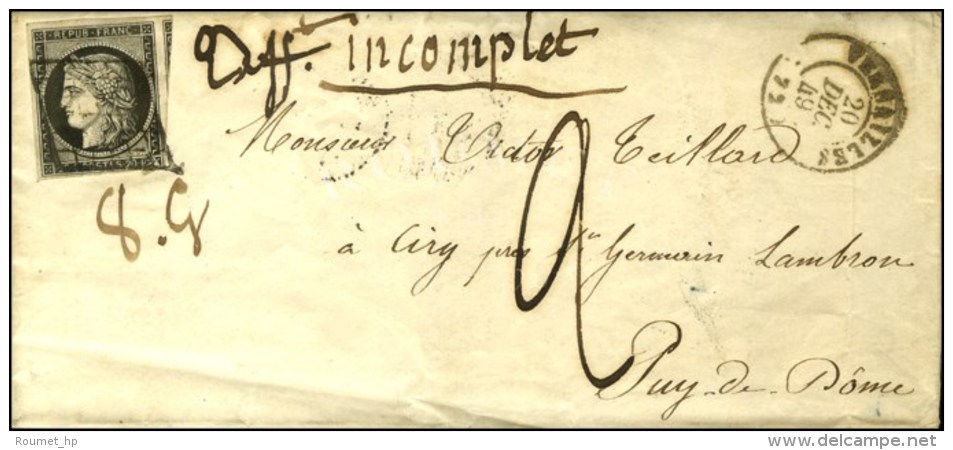 REPUB. FRANC.
Aff.t incomplet
VERSAILLES
20
DEC
49
Monsieur Victor Teillard
2
8.g
à Ciry près St Germain Lambron
Puy-de-Dôme
Roumet_hp
www.delcampe.net